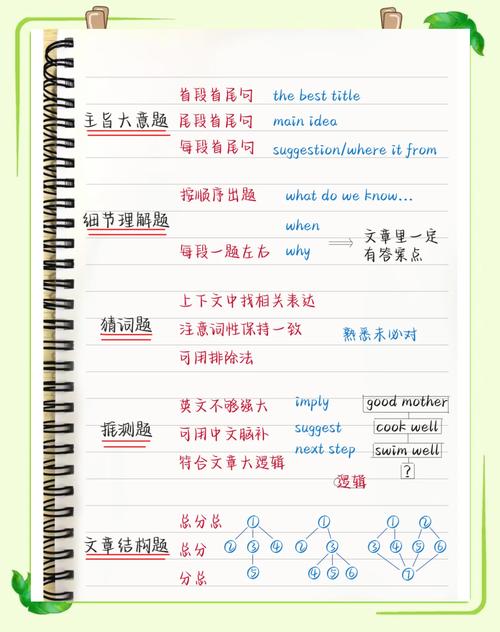 首段首尾句 the best title
主旨大意题 尾段首尾句 main idea
每段首尾句 suggestion/where it from
按顺序出题 what do we know...
细节理解题 when
每段一题左右 why
文章里一定
有答案点
上下文中找相关表达
猜词题 注意词性保持一致 熟悉未必对
可用排除法
英文不够强大 imply good mother
推测题 可用中文脑补 suggest cook well
符合文章大逻辑 next step swim well
?
逻辑
总分总 ① ① ① ②
文章结构题 总分 ② ③ ④ ② ③ ③ ④ ⑤ ⑥
分总 ⑤ ④ ⑤ ⑥ ⑦